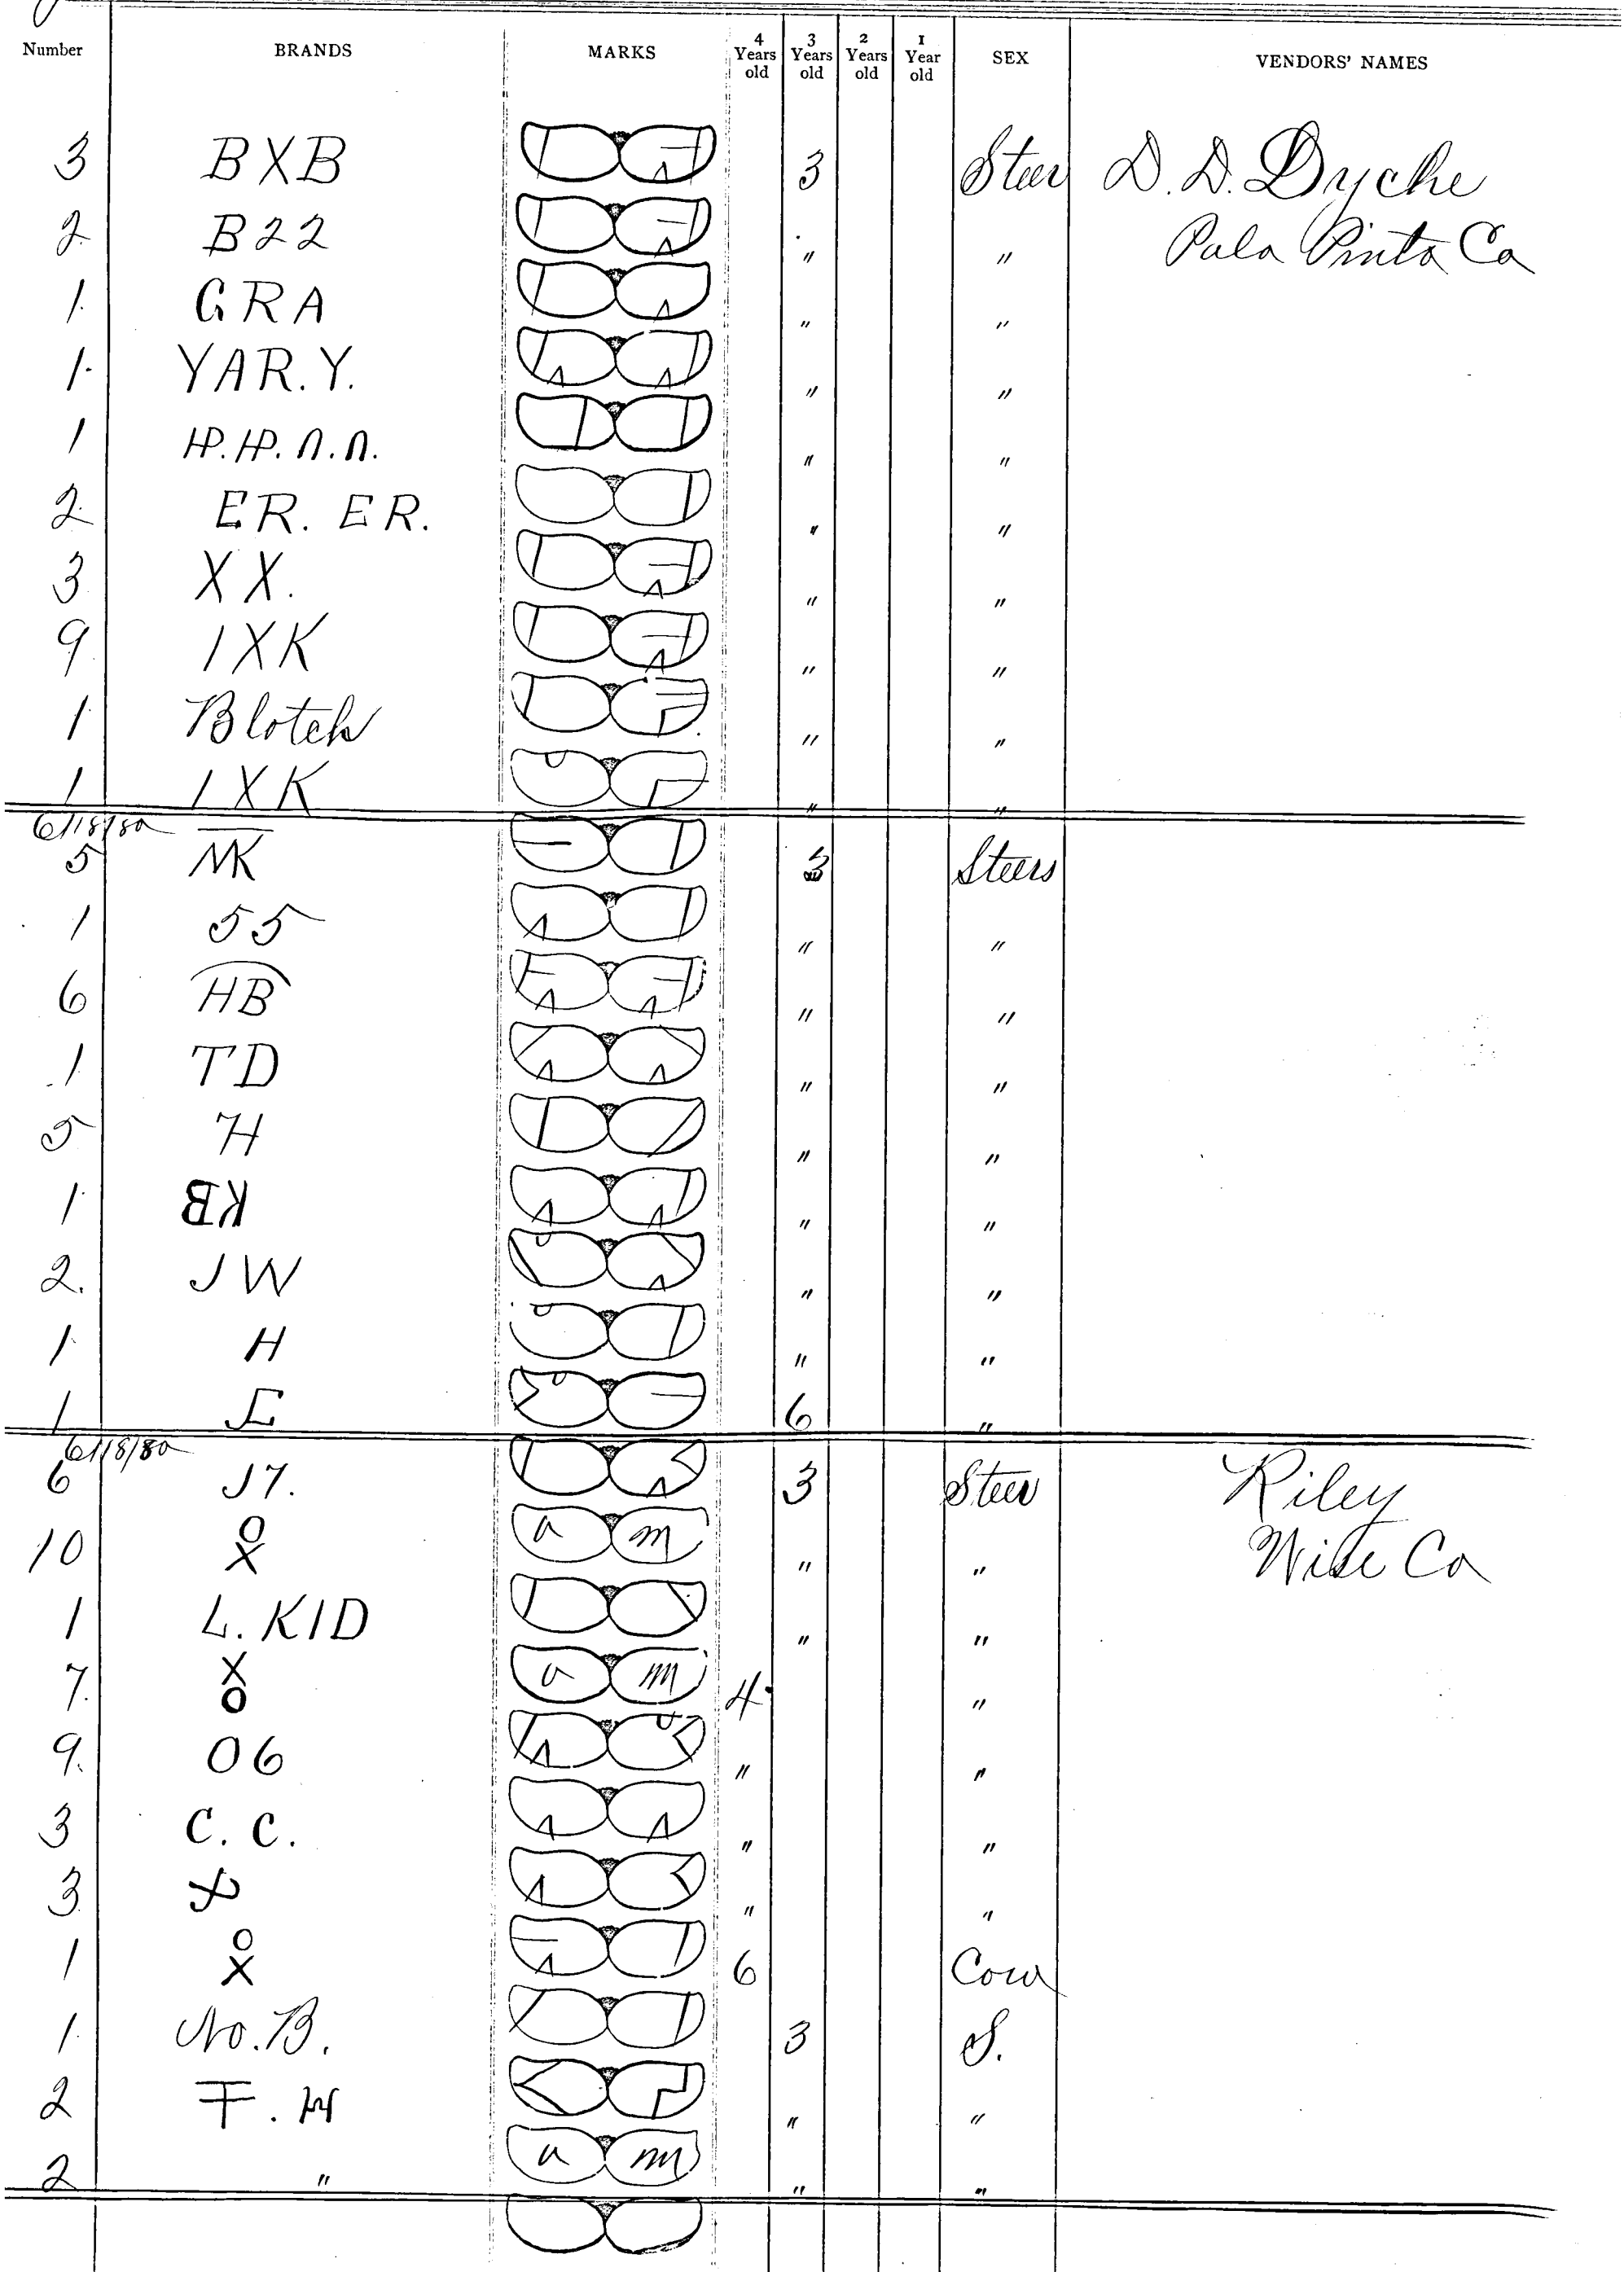 Number BRANDS MARKS 4 Years old 3 Years old 2 Years old 1 Year old SEX VENDORS' NAMES
3 BXB 3 Steer D. D. Dyche
2 B22 " " Palo Pinto Co
1 GRA " "
1 YAR.Y. " "
1 " "
2 ER. ER. " "
3 XX. " "
9 IXK " "
1 Blotch " "
1 IXK " "
6/18/80
5 NK 3 Steers
1 55 " "
6 HB " "
1 TD " "
5 H " "
1 KB " "
2. JW " "
1 H " "
1 6 "
6/18/80
6 J7. 3 Steer Riley
10 O X a m " " Wise Co
1 L. KID " "
7. X O a m 4 "
9. 06 " "
3 C. C. " "
3 " "
1 O X 6 Cow
1 No. B. 3 S.
2 " "
2 " a m " "